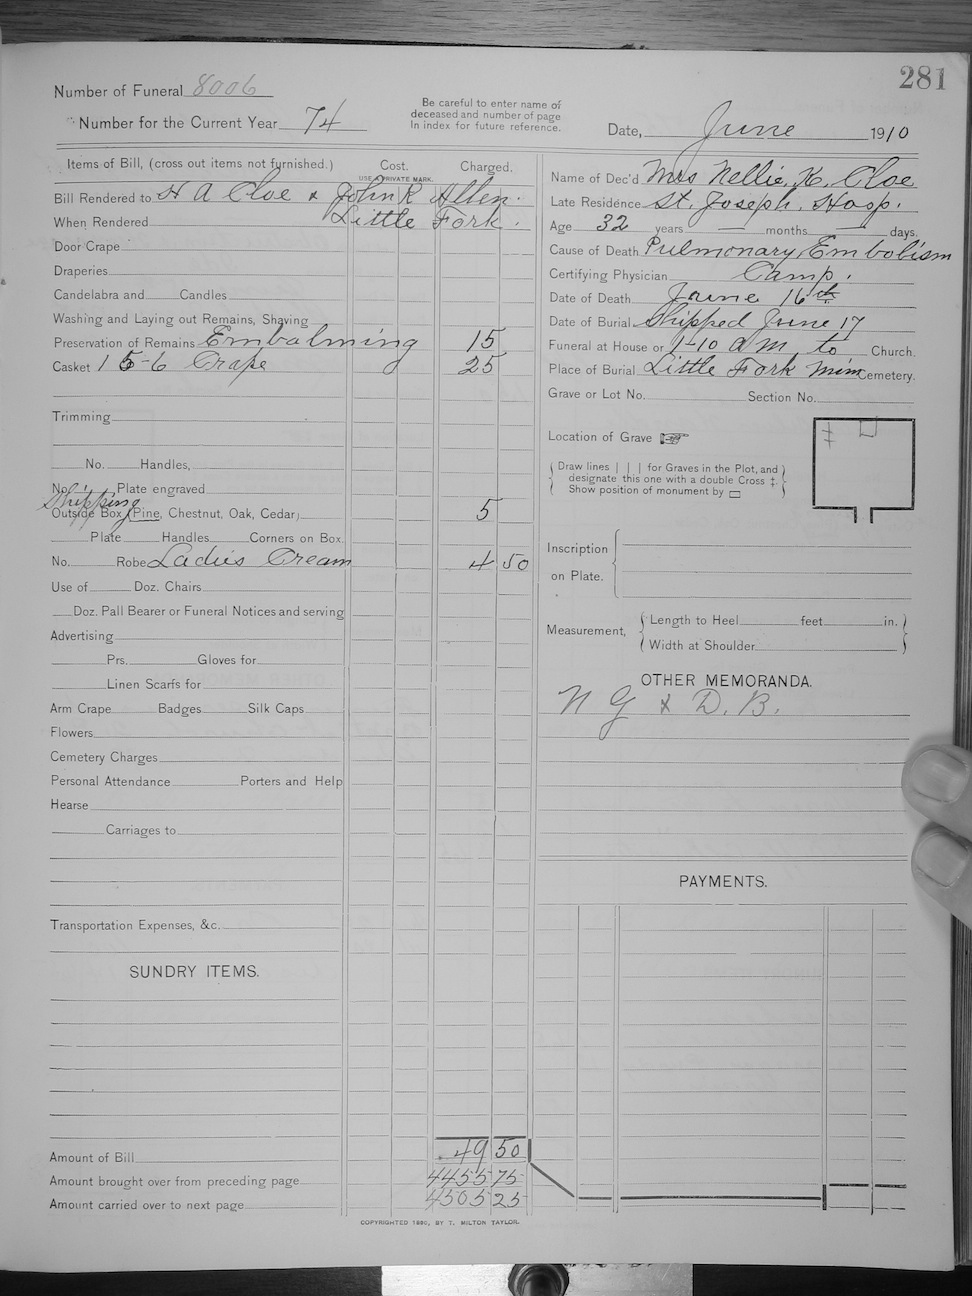 281
Number of Funeral 8006
Number for the Current Year 74
Be careful to enter name of
deceased and number of page
in index for future reference.
Date, June 1910
Items of Bill, (cross out items not furnished.) Cost. Charged.
USE A PRIVATE MARK.
Bill Rendered to H A Cloe & John R Allen.
When Rendered Little Fork.
Door Crape
Draperies
Candelabra and Candles
Washing and Laying out Remains, Shaving
Preservation of Remains Embalming 15
Casket 1 5-6 Crape 25
Trimming
No. Handles,
No. 1 Plate engraved
Shipping
Outside Box (Pine, Chestnut, Oak, Cedar) 5
Plate Handles Corners on Box.
No. Robe Ladies Cream 4 50
Use of Doz. Chairs
Doz. Pall Bearer or Funeral Notices and serving
Advertising
Prs. Gloves for
Linen Scarfs for
Arm Crape Badges Silk Caps
Flowers
Cemetery Charges
Personal Attendance Porters and Help
Hearse
Carriages to
Transportation Expenses, &c.
SUNDRY ITEMS.
Amount of Bill 49 50
Amount brought over from preceding page 4455 75
Amount carried over to next page 4505 25
Name of Dec'd Mrs Nellie K. Cloe
Late Residence St. Joseph. Hosp.
Age 32 years — months — days.
Cause of Death Pulmonary Embolism
Certifying Physician Camp.
Date of Death June 16th
Date of Burial Shipped June 17
Funeral at House or 1-10 a m to Church.
Place of Burial Little Fork Minn Cemetery.
Grave or Lot No. Section No.
Location of Grave
Draw lines | | | for Graves in the Plot, and
designate this one with a double Cross ‡.
Show position of monument by ▭
Inscription
on Plate.
Measurement, Length to Heel feet in.
Width at Shoulder
OTHER MEMORANDA.
N G & D. B.
PAYMENTS.
COPYRIGHTED 1890, BY T. MILTON TAYLOR.